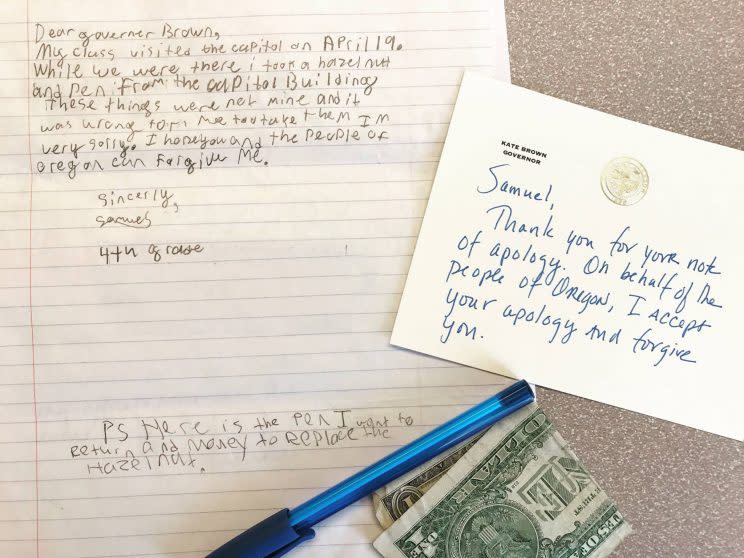 Dear governer Brown,
My class visited the capitol on April 19.
While we were there i took a hazelnutt
and pen from the capitol Building
These things were not mine and it
was wrong for me to take them I'm
very sorry. I hope you and the people of
oregon can forgive Me.
Sincerly,
samuel
4th grade
PS Here is the pen I want to
return and Money to REPlace the
Hazelnut.
KATE BROWN
GOVERNOR
Samuel,
Thank you for your note
of apology. On behalf of the
people of Oregon, I accept
your apology and forgive
you.
DOLLAR
ONE